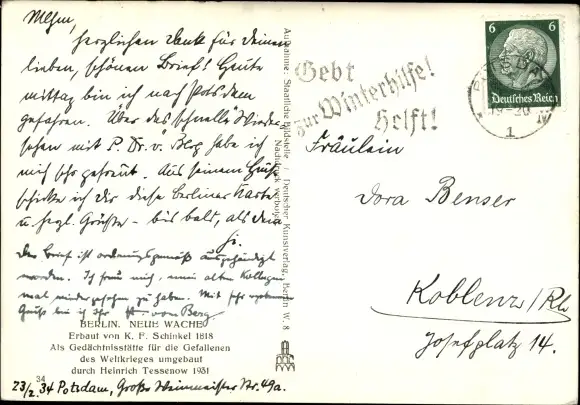 herzlichen Dank für Deinen
lieben, schönen Brief! Heute
mittag bin ich nach Potsdam
gefahren. Über das schnelle Wieder-
sehen mit P. Dr. v. Berg habe ich
mich sehr gefreut. Aus seinem
schicke ich dir diese Berliner Karte
u. herzl. Grüsse - bis bald, als dein
Der Brief ist ordnungsgemäß ausgehändigt
worden. Ich freue mich, einen alten Kollegen
mal wiedergesehen zu haben. Mit sehr
Gruß bin ich Ihr H. von Berg
BERLIN. NEUE WACHE
Erbaut von K. F. Schinkel 1818
Als Gedächtnisstätte für die Gefallenen
des Weltkrieges umgebaut
durch Heinrich Tessenow 1931
34
23/2.34 Potsdam, Große Weinmeister Str. 49a.
Aufnahme: Staatliche Bildstelle / Deutscher Kunstverlag, Berlin W. 8
Nachdruck verboten
Gebt
zur Winterhilfe!
Helft!
6 6
Deutsches Reich
19-20
1
Fräulein
Dora Benser
Koblenz/Rh
Josefplatz 14.